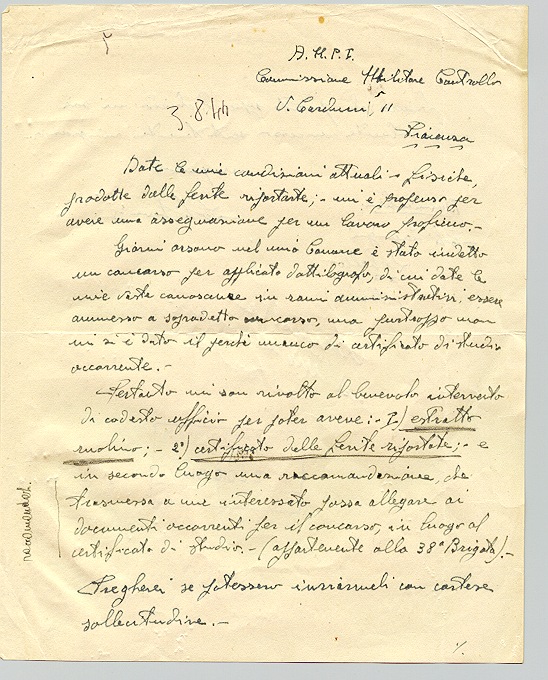 A.N.P.I.
Commissione Militare Controllo
V. Carducci, 11
3.8.44
Piacenza
Date le mie condizioni attuali - fisiche,
prodotte dalle ferite riportate; - mi è propenso per
avere una assegnazione per un lavoro proficuo. -
Giorni orsono nel mio Comune è stato indetto
un concorso per applicato dattilografo, di cui date le
mie vaste conoscenze in rami amministrativi, essere
ammesso a sopradetto concorso, ma purtroppo non
mi si è dato il perchè manco di certificato di studio
occorrente. -
Pertanto mi son rivolto al benevolo intervento
di codesto ufficio per poter avere: - 1°) estratto
ruolino; - 2°) certificato delle ferite riportate; - e
in secondo luogo una raccomandazione, che
trasmessa a me interessato possa allegare ai
documenti occorrenti per il concorso, in luogo al
certificato di studio. - (appartenente alla 38ª Brigata). -
Pregherei se potessero inviarmeli con cortese
sollecitudine. -